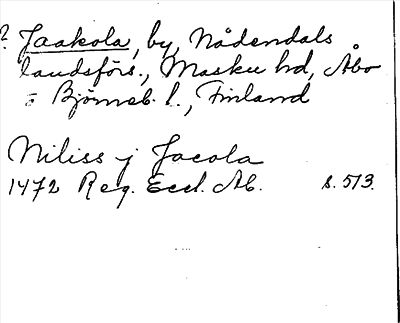 ? Jaakola, by, Nådendals
landsförs., Masku hd, Åbo
o Björneb. l., Finland
Niliss j Jacola
1472 Reg. Eccl. Ab. s. 513.